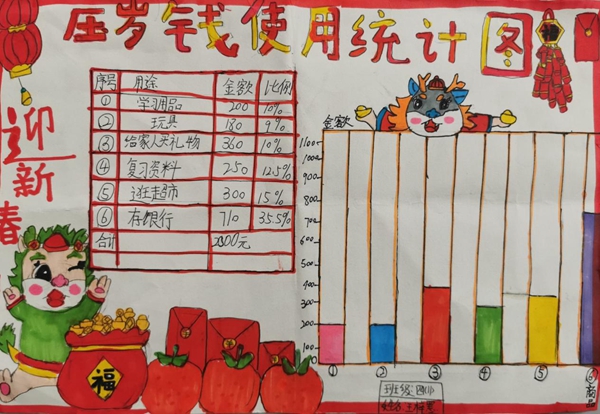 压岁钱使用统计图
迎新春
序号 用途 金额 比例
① 学习用品 200 10%
② 玩具 180 9%
③ 给家人买礼物 360 10%
④ 复习资料 250 12.5%
⑤ 逛超市 300 15%
⑥ 存银行 710 35.5%
合计 2000元
福
金额
1100
1000
900
800
700
600
500
400
300
200
100
① ② ③ ④ ⑤ ⑥
商品
班级:
姓名:
福